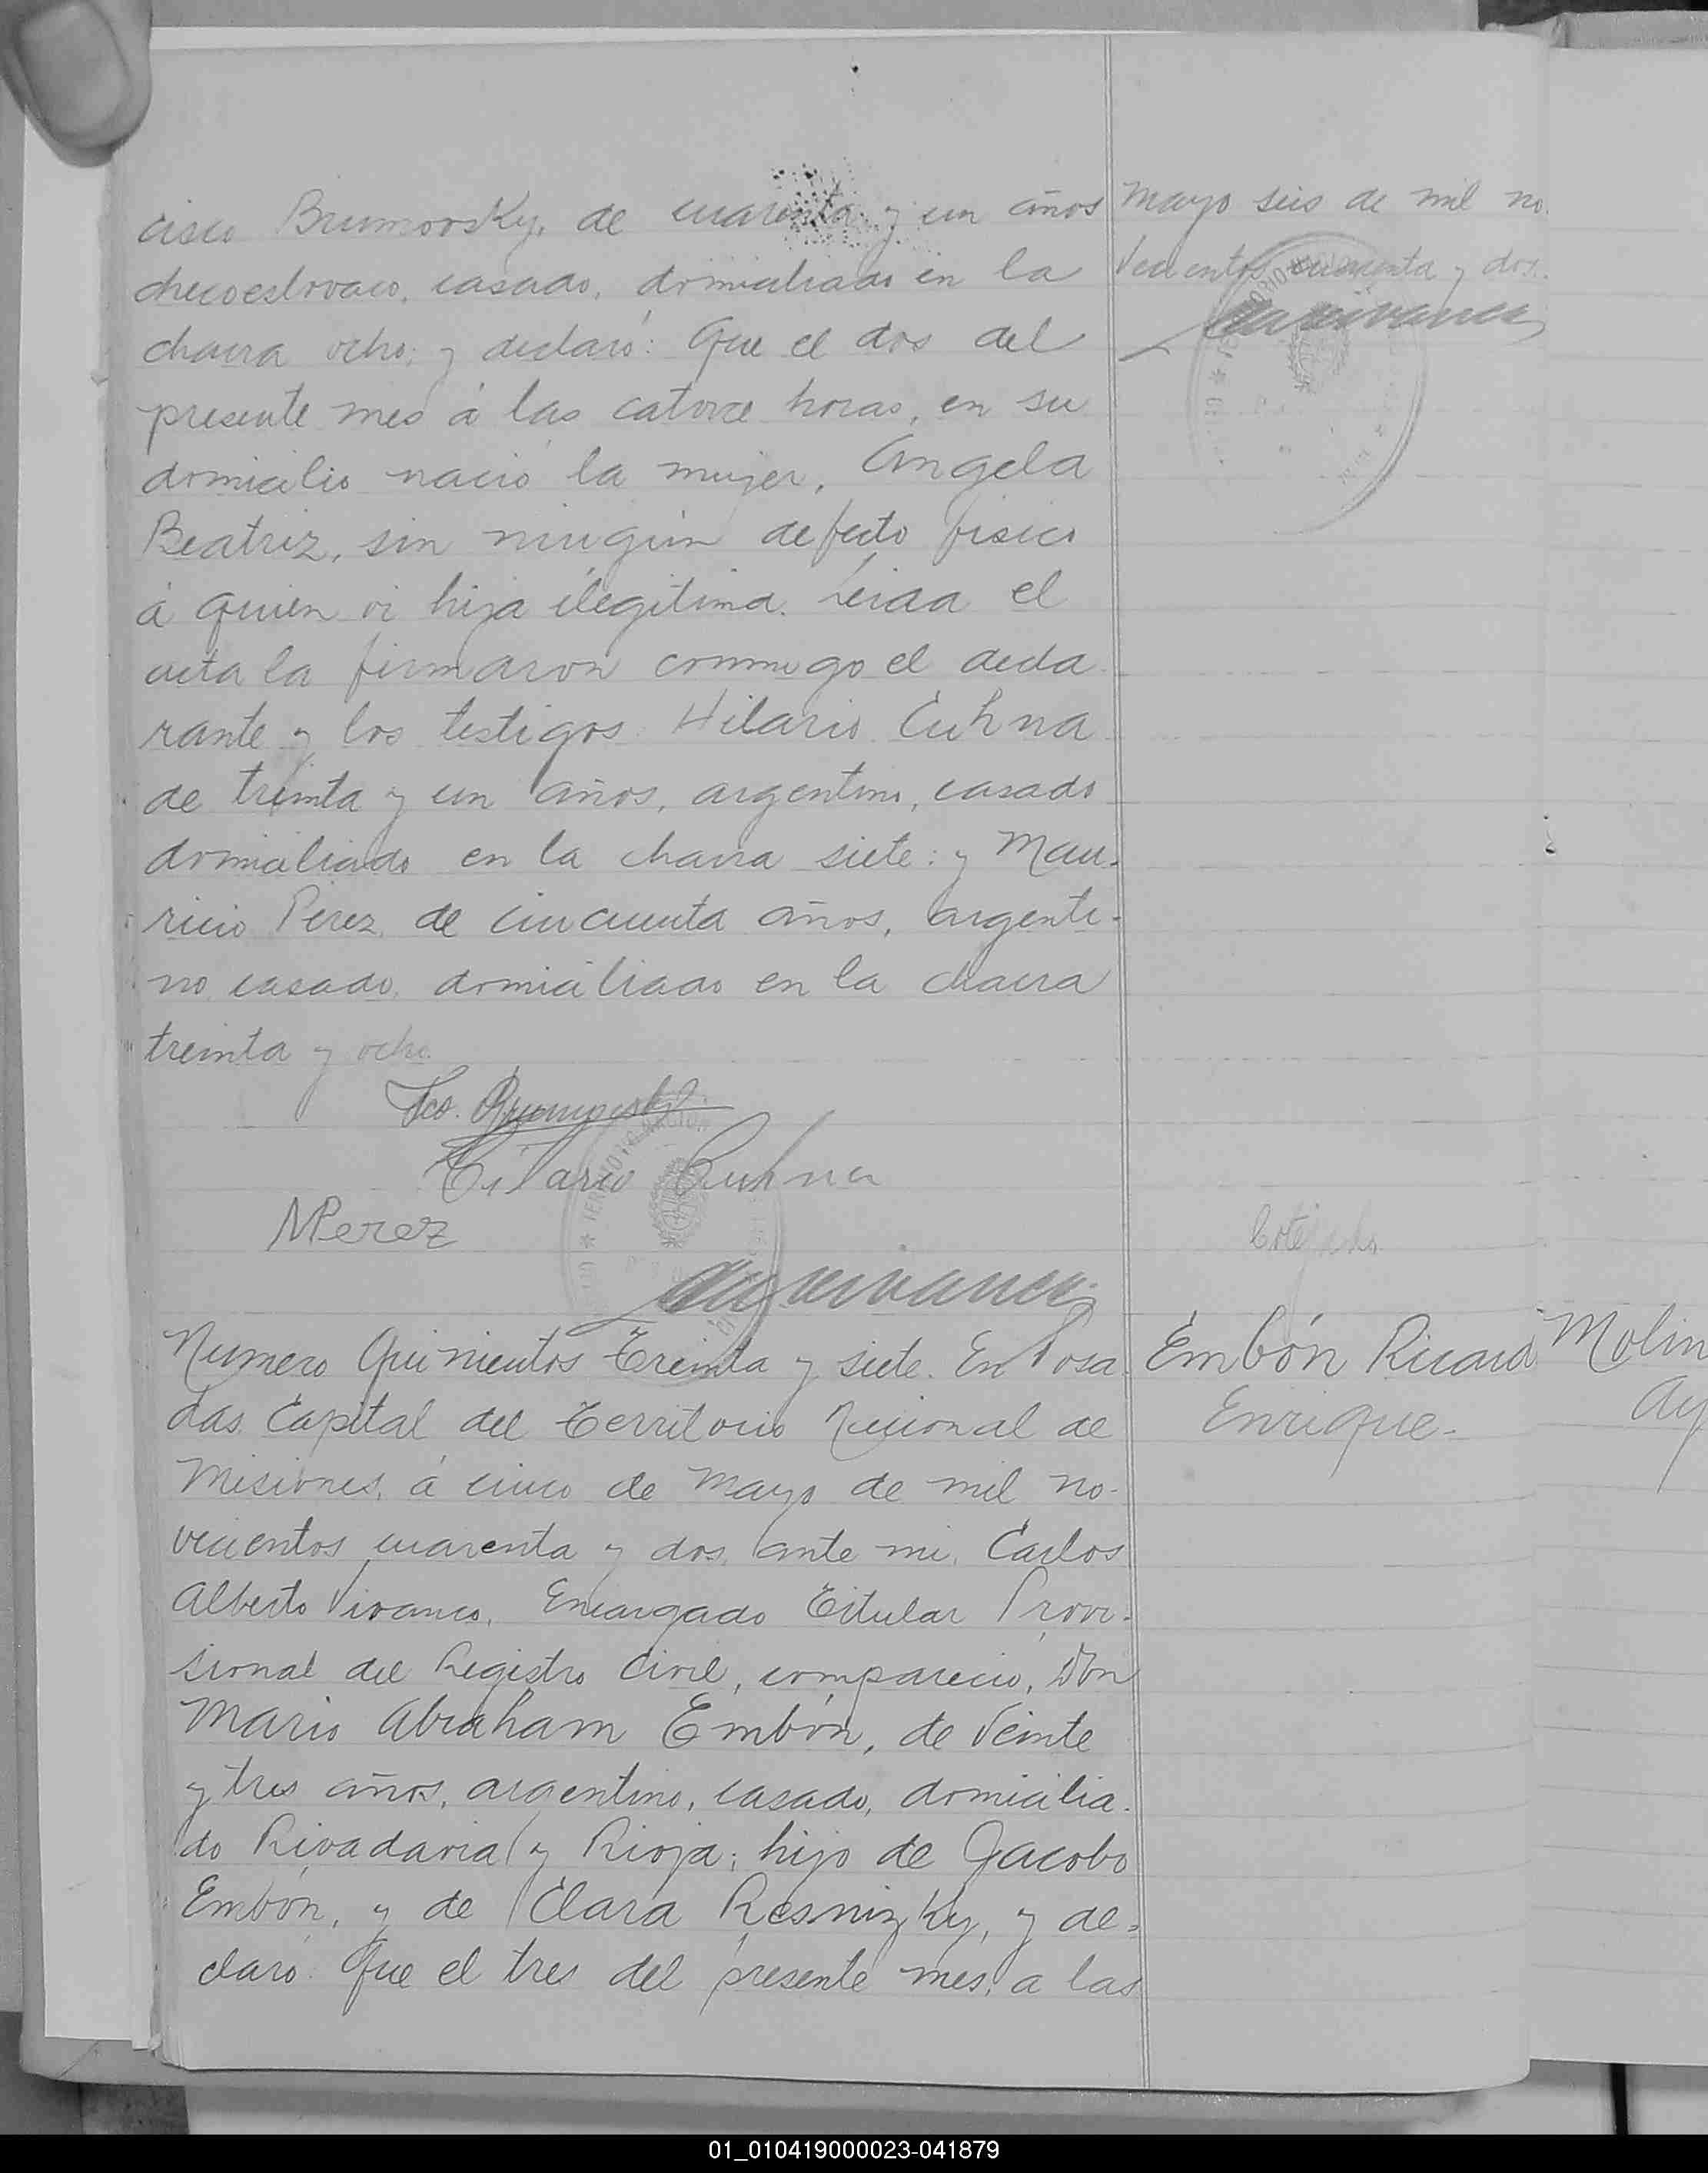 cisco Brumovsky, de cuarenta y un años
checoeslovaco, casado, domiciliado en la
chacra ocho; y declaró: Que el dos del
presente mes á las catorce horas, en su
domicilio nació la mujer, Angela
Beatriz, sin ningún defecto fisico
á quien vi hija ilegítima. Leida el
acta la firmaron conmigo el decla
rante y los testigos Hilario Cuhna
de treinta y un años, argentino, casado
domiciliado en la chacra siete: y Mau-
ricio Perez de cincuenta años, argenti-
no casado, domiciliado en la chacra
treinta y ocho.
Fco. Brumovsky
Hilario Cuhna
MPerez
Mayo seis de mil no-
vecientos cuarenta y dos.
Numero Quinientos Treinta y siete. En Posa-
das, Capital del Territorio Nacional de
Misiones, á cinco de Mayo de mil no-
vecientos cuarenta y dos, ante mi, Carlos
Alberto Vivanco, Encargado Titular Provi-
sional del Registro Civil, compareció, Don
Mario Abraham Embón, de Veinte
y tres años, argentino, casado, domicilia-
do Rivadavia y Rioja; hijo de Jacobo
Embón, y de Clara Resnizky, y de-
claró: Que el tres del presente mes, a las
Cotejado
Embón Ricardo
Enrique-
Molin
01_010419000023-041879